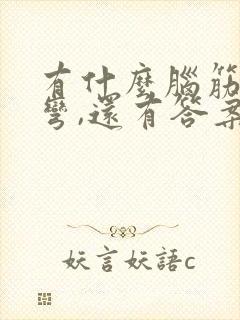 有什麼腦筋
彎,還有答案
妖言妖語c